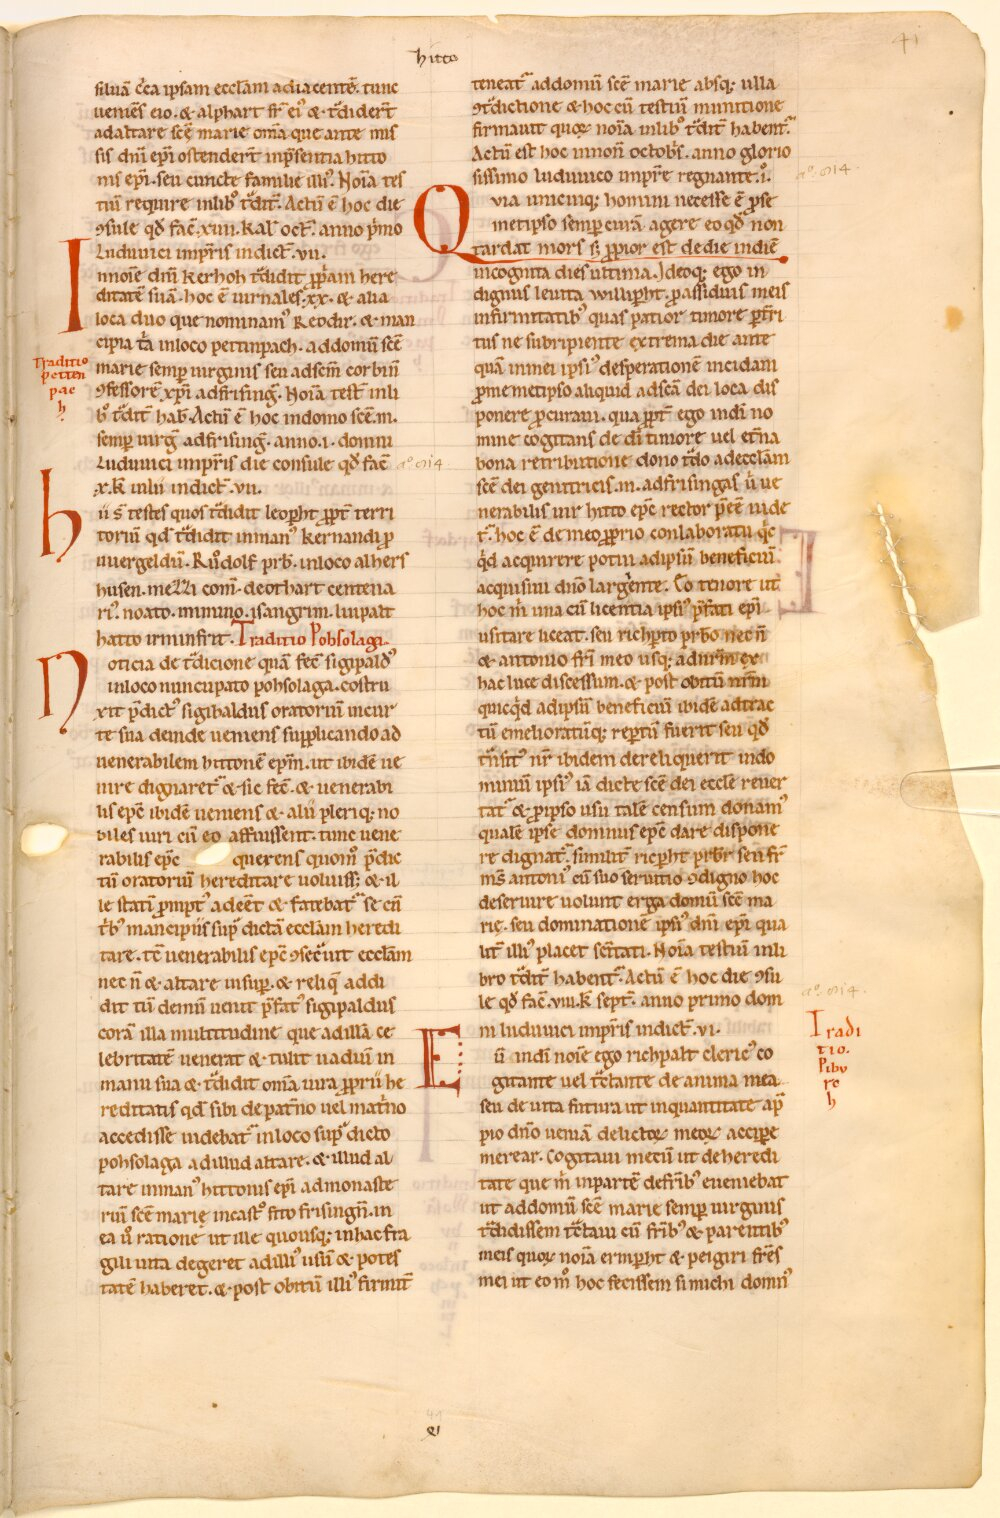 hitto
41
siluā c̄ca ipsam eccl̄am adiacentē. tunc
ueniēs eio. & alphart fr̄ ei᾿ & t᷑didert̄
ad altare scē marie om̄a que ante mis
sis dn̄i ep̄i ostendert̄ inp̄sentia hitto
nis ep̄i. seu cuncte familie illi᾿. Noīa tes
tiū require inlib᾿ t᷑dit̄. Actū ē hoc die
ꝯsule qđ fac̄. xviii. kal᾿ oct᷑. anno p͛mo
Luduuici imp̄ris indict᷑. vii.
Innoīe dn̄i kerhoh t᷑didit ꝓp͛am here
ditatē suā. hoc ē iurnales. xx. & alia
loca duo que nominam᾿ Reodir. & man
cipia t͛a inloco pettinpach. addomū scē
marie semꝑ uirginis seu adscm̄ corbin̄
ꝯfessorē xp̄i adfrisinḡ. Noīa test᷑ inli
b᾿ t᷑dit᷑ hab̄. Actū ē hoc indomo scē. m.
semꝑ uirḡ adfrisinḡ. anno. i. domni
Luduuici imp̄ris die consule qđ fac̄
.x. k᷑ iulii indict᷑. vii.
a͛o. 814
Traditio
petten
pac
h
hii s᷑ testes quos t᷑didit leop̱ht ꝓpt᷑ terri
toriū qđ t᷑didit inman᾿ kernandi ꝓ
uuergeldū. Ruodolf prb᷑. inloco alhers
husen. meZZi com̄. deothart centena
ri᾿. noato. minino. isangrim. liupalt
hatto irminfrit. Traditio Pohsolaga.
Noticia de t᷑dicione quā fec̄ sigipald᾿
inloco nuncupato pohsolaga. costru
xit p̄dict᾿ sigibaldus oratoriū incur
te sua deinde ueniens supplicando ad
uenerabilem hittonē ep̄m. ut ibidē ue
nire dignaret᷑ & sic fec̄. & uenerabi
lis ep̄c ibidē ueniens & alii pleriq; no
biles uiri cū eo affuissent. tunc uene
rabilis ep̄c querens quom̊ p̄dic
tū oratoriū hereditare uoluiss; & il
le statī ꝓmpt᾿ adeēt & fatebat᷑ se cū
t͛b᾿ mancipiis sup᷑ dictā eccl̄am heredi
tare. tc̄ uenerabilis ep̄c ꝯsec᷑uit eccl̄am
nec n̄ & altare insuꝑ. & reliq᷑ addi
dit tū demū uenit p̄fat᾿ sigipaldus
corā illa multitudine que adillā ce
lebritatē uenerat & tulit uadiū in
manu sua & t᷑didit om̄a iura ꝓprii he
reditatis qđ sibi de pat͛no uel mat͛no
accedisse uidebat᷑ inloco sup᷑ dicto
pohsolaga adillud altare. & illud al
tare inman᾿ hittonis ep̄i admonaste
riū scē marię incast᾿ sito frisingn̄. in
ea ū ratione ut ille quousq; inhac fra
gili uita degeret adilli᾿ usū & potes
tatē haberet. & post obitū illi᾿ firmit᷑
teneat᷑ addomū scē marie absq; ulla
ꝯt᷑dictione & hoc cū testiū munitione
firmauit quoꝝ noīa inlib᾿ t᷑dit᷑ habent᷑.
Actū est hoc innoñ octob͛s. anno glorio
sissimo luduuico imp̄re regnante. i.
a͛o. 814.
Quia unicuiq; homini necesse ē ꝓ se
metipso semꝑ curā agere eo qđ non
tardat mors s᷑ ꝓpior est de die indiē
incognita dies ultima. Ideoq; ego in
dignus leuita willip̱ht. ꝑassiduis meis
infirmitatib᾿ quas patior timore ꝑt͛ri
tus ne subripiente extrema die ante
quā inmei ipsi᾿ desperationē incidam
ꝓ me metipso aliquid adscā dei loca dis
ponere ꝓcuraui. qua ꝓpt᷑ ego indi no
mine cogitans de dī timore uel et͛na
bona retributione dono t᷑do adeccl̄am
scē dei genitricis. m. adfrisingas ū ue
nerabilis uir hitto ep̄c rector p̄eē uide
t᷑. hoc ē de meo ꝓprio conlaboratu q͛c
q͛d acquirere potui adipsū beneficiū
acquisiui dn̄o larg͛ente. Eo tenore ut᷑
hoc m͛ una cū licentia ipsi᾿ p̄fati ep̄i
usitare liceat. seu richp̱to prb͛o nec n̄
& antonio fr̄i meo usq; adur̄m ex
hac luce discessum. & post obitū nr̄m
quicq͛d adipsū beneficiū ibidē adtrac
tū emelioratūq; repertū fuerit seu qđ
t᷑nsit᾿ nr̄ ibidem dereliquerit indo
miniū ipsi᾿ iā dicte scē dei eccl̄e reuer
tat᷑ & ꝓ ipso usu talē censum donam᾿
qualē ipse dominus ep̄c dare dispone
re dignat᷑. similit᷑ ricp̱ht prb͛r seu fr̄
ms̄ antoni᾿ cū suo seruitio ꝯdigno hoc
deseruire uolunt erga domū scē ma
rię. seu dominationē ipsi᾿ dn̄i ep̄i qua
lit᷑ illi᾿ placet sent̄tati. Noīa testiū inli
bro t᷑dit᷑ habent᷑. Actū ē hoc die ꝯsu
le qđ fac̄. viii. k᷑ sept᷑. anno primo dom
ni luduuici imp̄ris indict᷑. vi.
a͛o. 814.
Tradi
tio.
Pibu
rc
h
Eū indī noīe ego richpalt cleric᾿ co
gitante uel t᷑ctante de anima mea
seu de uita futura ut inquantitate ap᷑
pio dn̄o ueniā delictoꝝ meoꝝ accipe̱
merear. Cogitaui mecū ut de heredi
tate que m͛ inpartē defr̄ib᾿ eueniebat
ut addomū scē marie semꝑ uirginis
t᷑didissem t᷑ctaui cū fr̄ib᾿ & parentib᾿
meis quoꝝ noīa ermp̱ht & peigiri fr̄es
mei ut eo m̊ hoc fecissem si michi domn᾿
41